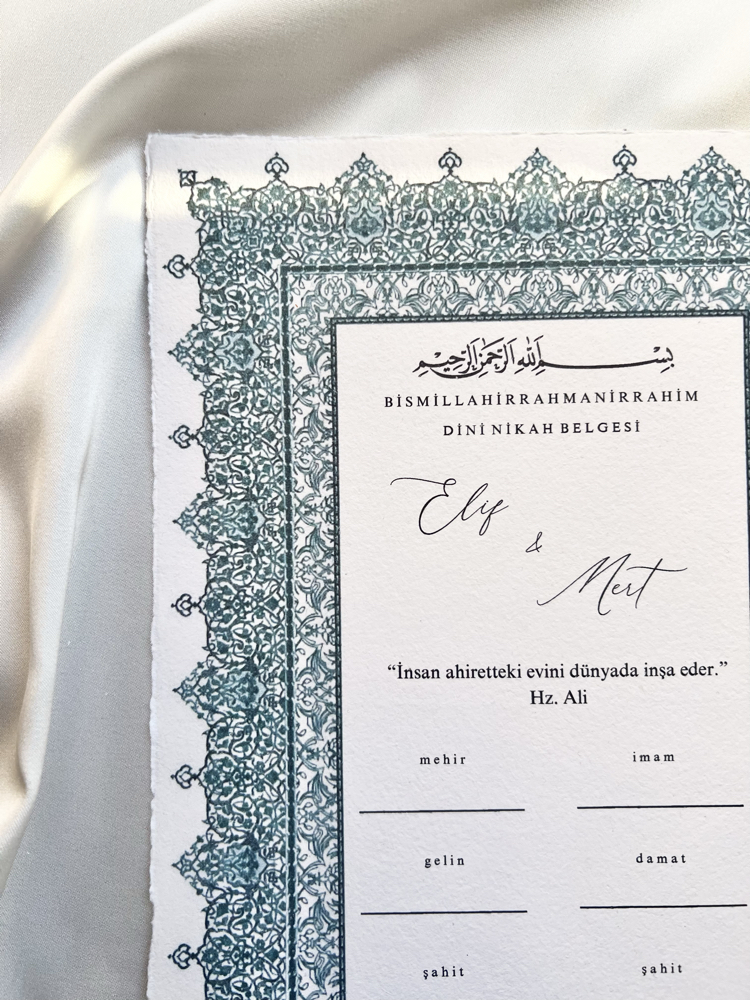 بِسْمِ اللهِ الرَّحْمٰنِ الرَّحِيمِ
BİSMİLLAHİRRAHMANİRRAHİM
DİNİ NİKAH BELGESİ
Elif
&
Mert
“İnsan ahiretteki evini dünyada inşa eder.”
Hz. Ali
mehir imam
gelin damat
şahit şahit